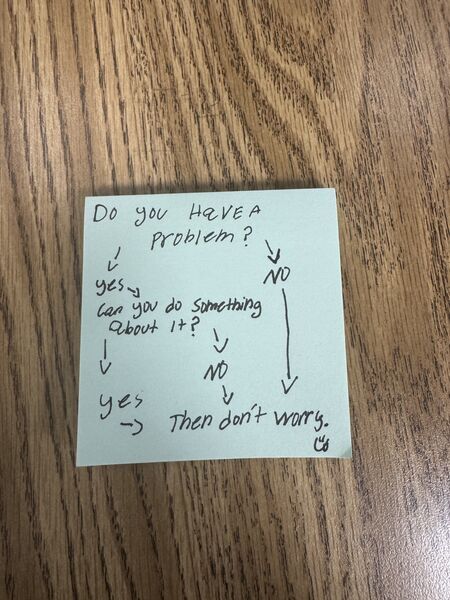 Do you HAVE A
problem?
yes
NO
can you do something
about it?
NO
yes
Then don't worry.